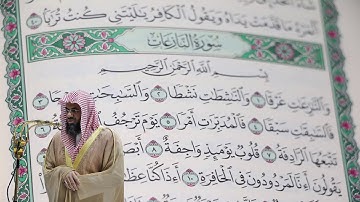 الْمَرْءُ مَا قَدَّمَتْ يَدَاهُ وَيَقُولُ الْكَافِرُ يَا لَيْتَنِي كُنْتُ تُرَابًا
سُورَةُ النَّازِعَاتِ
بِسْمِ اللَّهِ الرَّحْمَٰنِ الرَّحِيمِ
وَالنَّازِعَاتِ غَرْقًا ١ وَالنَّاشِطَاتِ نَشْطًا ٢ وَالسَّابِحَاتِ سَبْحًا ٣
فَالسَّابِقَاتِ سَبْقًا ٤ فَالْمُدَبِّرَاتِ أَمْرًا ٥ يَوْمَ تَرْجُفُ
تَتْبَعُهَا الرَّادِفَةُ ٧ قُلُوبٌ يَوْمَئِذٍ وَاجِفَةٌ ٨
يَقُولُونَ أَإِنَّا لَمَرْدُودُونَ فِي الْحَافِرَةِ ١٠ أَإِذَا كُنَّا عِظَامًا